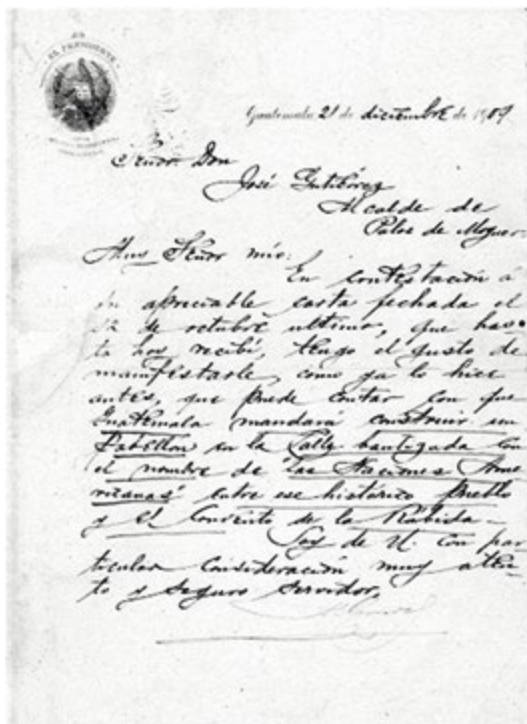 EL PRESIDENTE
Guatemala 21 de diciembre de 1909
Señor Don
José Gutiérrez
Alcalde de
Palos de Moguer.
Muy Señor mio:
En contestación á
su apreciable carta fechada el
12 de octubre ultimo, que has
ta hoy recibí, tengo el gusto de
manifestarle, como ya lo hice
antes, que puede contar con que
Guatemala mandará construir un
Pabellon en la Calle bautizada con
el nombre de "las Naciones Ame
ricanas" entre ese histórico Pueblo
y el Convento de la Rábida.-
Soy de U. con par
ticular consideración muy aten-
to y seguro servidor,